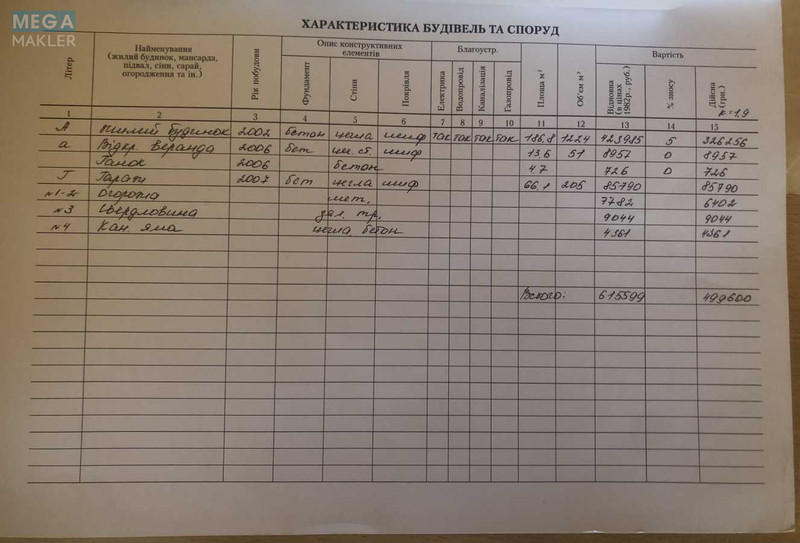 MEGA
MAKLER
ХАРАКТЕРИСТИКА БУДІВЕЛЬ ТА СПОРУД
Літер
Найменування
(жилий будинок, мансарда,
підвал, сіни, сарай,
огородження та ін.)
Рік побудови
Опис конструктивних
елементів
Фундамент
Стіни
Покрівля
Благоустр.
Електрика
Водопровід
Каналізація
Газопровід
Площа м²
Об'єм м²
Вартість
Відновна
(в цінах
1982р., руб.)
% зносу
Дійсна
(грн.)
к=1,9
1 2 3 4 5 6 7 8 9 10 11 12 13 14 15
А жилий будинок 2002 бетон цегла шиф так так так так 186,8 1224 423985 5 326256
а Відкр. веранда 2006 бет шиф 13,6 51 8957 0 8957
Ганок 2006 бетон 4,7 726 0 726
Г Гараж 2007 бет цегла шиф 66,1 205 85790 85790
№1-2 Огорожа мет. 7782 6402
№3 Свердловина зал. тр. 9044 9044
№4 Кан. яма цегла бетон 4361 4361
Всього: 615599 499600